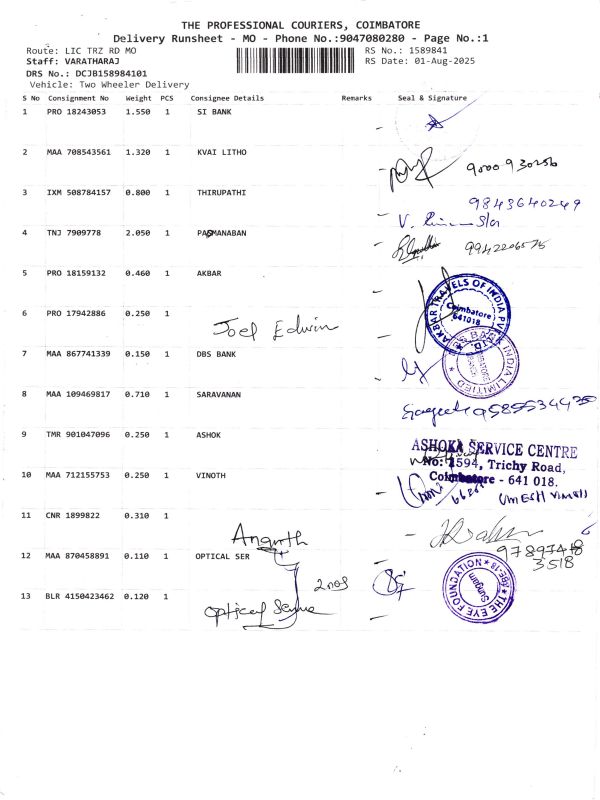 THE PROFESSIONAL COURIERS, COIMBATORE
Delivery Runsheet - MO - Phone No.:9047080280 - Page No.:1
Route: LIC TRZ RD MO RS No.: 1589841
Staff: VARATHARAJ RS Date: 01-Aug-2025
DRS No.: DCJB158984101
Vehicle: Two Wheeler Delivery
S No Consignment No Weight PCS Consignee Details Remarks Seal & Signature
1 PRO 18243053 1.550 1 SI BANK
2 MAA 708543561 1.320 1 KVAI LITHO
9000930256
3 IXM 508784157 0.800 1 THIRUPATHI
9843640249
4 TNJ 7909778 2.050 1 PADMANABAN
9942206575
5 PRO 18159132 0.460 1 AKBAR
AKBAR TRAVELS OF INDIA PVT. LTD.
Coimbatore
641018
6 PRO 17942886 0.250 1
Joel Edwin
7 MAA 867741339 0.150 1 DBS BANK
BANK INDIA LIMITED
8 MAA 109469817 0.710 1 SARAVANAN
9 TMR 901047096 0.250 1 ASHOK
ASHOKA SERVICE CENTRE
No: 1594, Trichy Road,
Coimbatore - 641 018.
10 MAA 712155753 0.250 1 VINOTH
11 CNR 1899822 0.310 1
Ananth
97897418
3518
12 MAA 870458891 0.110 1 OPTICAL SER
THE EYE FOUNDATION
Sungam
2nos
13 BLR 4150423462 0.120 1
optical